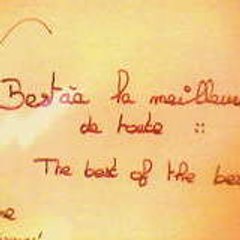 Bestàa la meilleu
de toute ::
The best of the bes